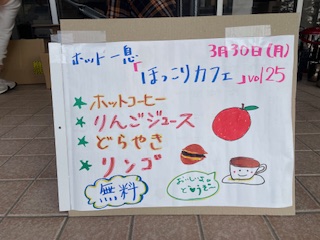 ホット一息 3月30日(月)
「ほっこりカフェ」vol 25
★ホットコーヒー
★りんごジュース
★どらやき
★リンゴ
無料